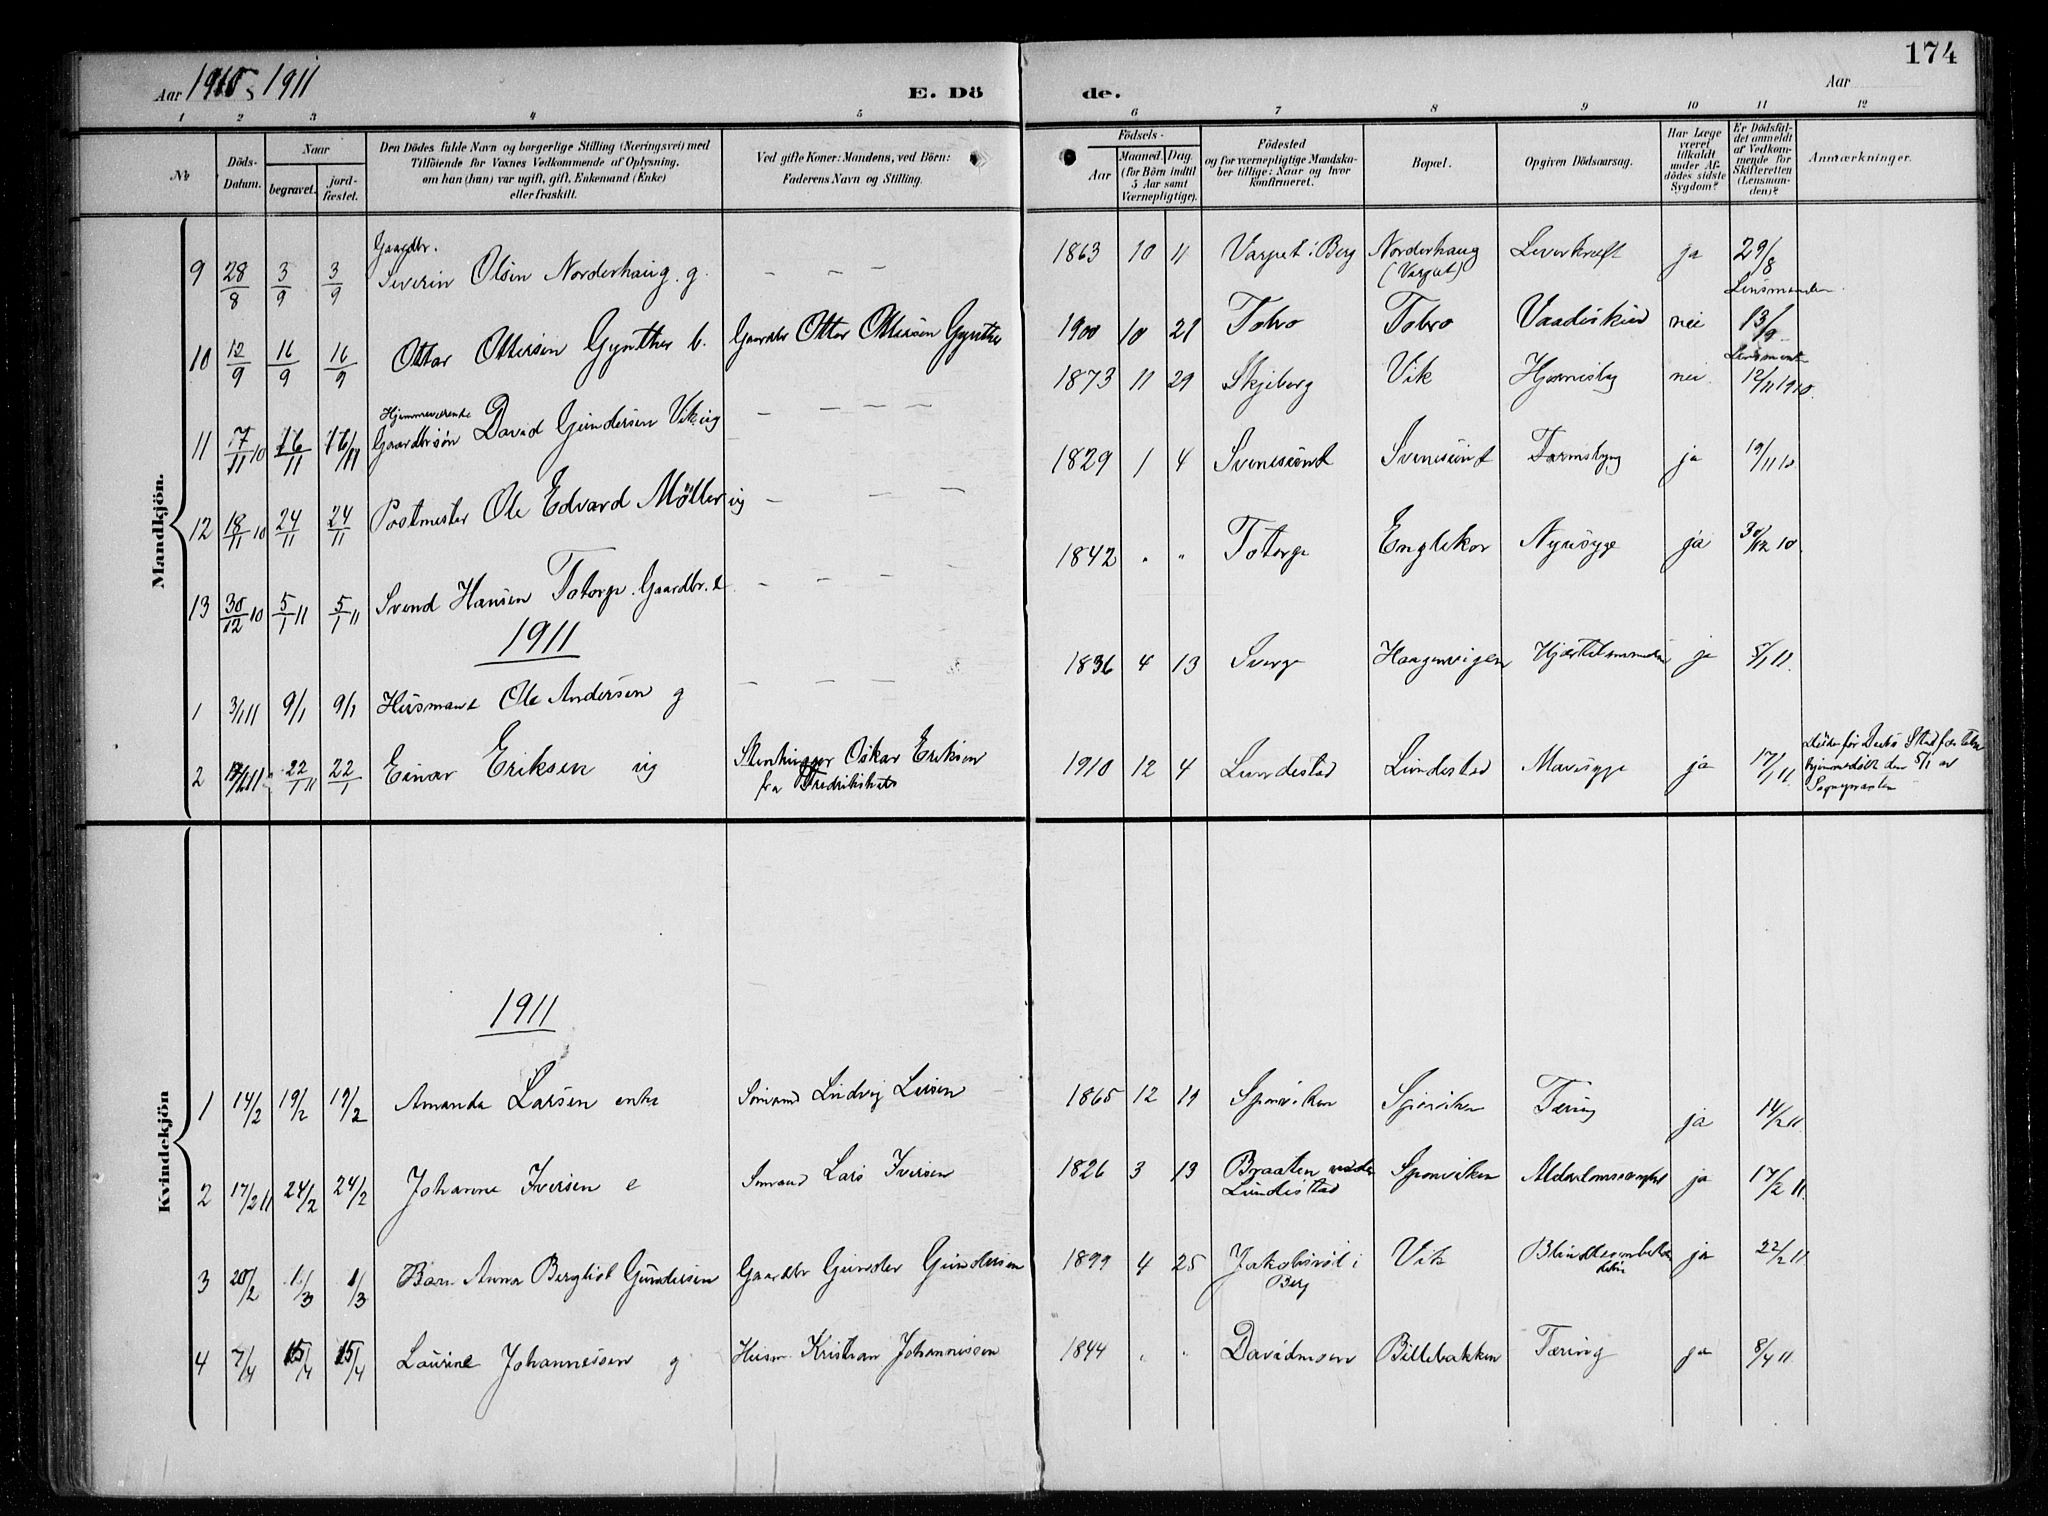 174
Aar 1910 1911
E. Döde.
Aar
1 2 3 4 5 6 7 8 9 10 11 12
No
Döds-Datum.
Naar
begravet.
jord-fæstet.
Den Dödes fulde Navn og borgerlige Stilling (Næringsvei) med
Tilföiende for Voxnes Vedkommende af Oplysning,
om han (hun) var ugift, gift, Enkemand (Enke)
eller fraskilt.
Ved gifte Koner: Mandens, ved Börn:
Faderens Navn og Stilling.
Födsels-
Aar
Maaned. Dag.
(for Börn indtil
5 Aar samt
Værnepligtige).
Födested
og for værnepligtige Mandska-
ber tillige: Naar og hvor
konfirmeret.
Bopæl.
Opgiven Dödsaarsag.
Har Læge
været
tilkaldt
under Af-
dödes sidste
Sygdom?
Er Dödsfal-
det anmeldt
af Vedkom-
mende for
Skifteretten
(Lensman-
den)?
Anmærkninger.
Mandkjön.
9 28/8 3/9 3/9 Gaardbr. Severin Olsen Norderhaug. g. — — — 1863 10 11 Varpet i Berg Norderhaug (Varpet) Leverkræft ja 29/8 Lensmanden
10 12/9 16/9 16/9 Ottar Ottersen Gynther b. Gaardbr Ottar Ottersen Gynther 1900 10 21 Tobro Tobro Vaadeskud nei 13/9 Lensmand
11 7/11 10 16/11 16/11 Hjemmeværende Gaardbrsön David Gundersen Vik ug — — — — 1873 11 29 Skjeberg Vik nei. 12/11 1910.
12 18/11 10 24/11 24/11 Postmester Ole Edvard Möller ug — — — 1829 1 4 Svinesund Svinesund ja 19/11 10
13 30/12 10 5/1 11 5/1 11 Svend Hansen Totorp. Gaardbr. e — — — 1842 " " Totorp Englekor Nyresyge ja 30/12 10.
1911
1 3/1 11 9/1 9/1 Husmand Ole Andersen g — — — — 1836 4 13 Sverge Haagenvigen ja 5/1 11.
2 22/1 11 22/1 Einar Eriksen ug Stenhugger Oskar Eriksen fra Fredrikshald 1910 12 4 Lundestad Lundestad Mavesyge ja 17/1 11. hjemmedöbt den 5/1 av Sognepresten
Kvindekjön
1911
1 14/2 19/2 19/2 Amanda Larsen enke Sömand Ludvig Larsen 1865 12 19 Sponviken Sponviken Tæring ja 14/2 11.
2 17/2 11 24/2 24/2 Johanne Iversen e Sömand Lars Iversen 1826 3 13 Braaten under Lundestad Sponviken ja 17/2 11.
3 20/2 1/3 1/3 Barn Anna Bergliot Gundersen Gaardbr Gunder Gundersen 1899 4 25 Jakobsröd i Berg Vik ja 22/2 11.
4 7/4 15/4 15/4 Laurine Johannessen g Husm. Kristian Johannessen 1844 " " Davidmoen Billebakken Tæring ja 8/4 11.